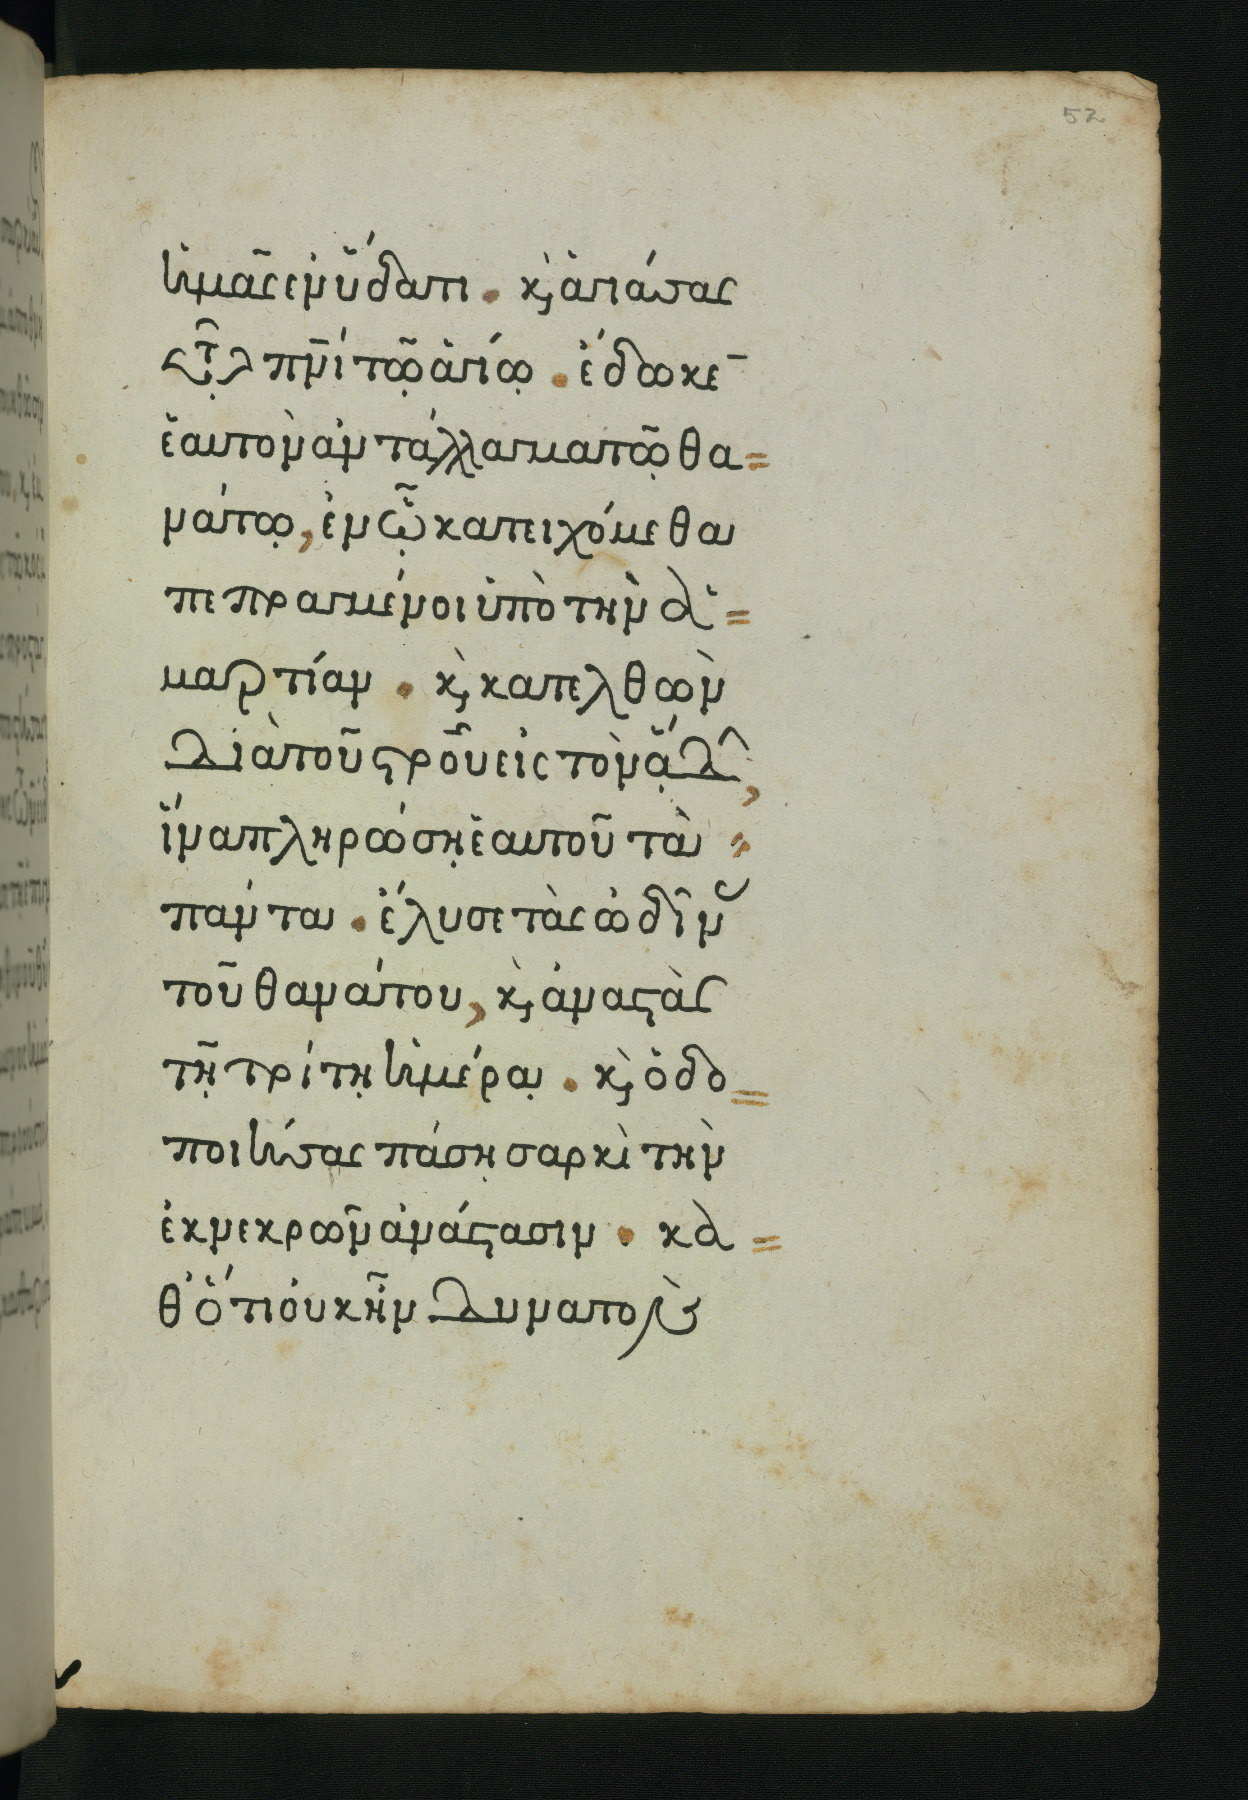 52
ἡμᾶς ἐν ὕδατι . κ, ἁγιάσας
τῷ πνι τῷ ἁγίῳ . ἔδωκε̄
ἑαυτὸν ἀντάλλαγμα τῷ θα=
νάτῳ, ἐν ᾧ κατειχόμεθα
πεπραγμένοι ὑπὸ τὴν ἁ=
μαρτίαν . κ, κατελθὼν
διὰ τοῦ ςροῦ εἰς τὸν ᾅδ,
ἵνα πληρώσῃ ἑαυτοῦ τὰ
πάντα . ἔλυσε τὰς ὠδῖν
τοῦ θανάτου, κ, ἀναςὰς
τῇ τρίτῃ ἡμέρᾳ . κ, ὁδο=
ποιήσας πάσῃ σαρκὶ τὴν
ἐκ νεκρῶν ἀνάςασιν . κα=
θ' ὅτι οὐκ ἦν δυνατὸν